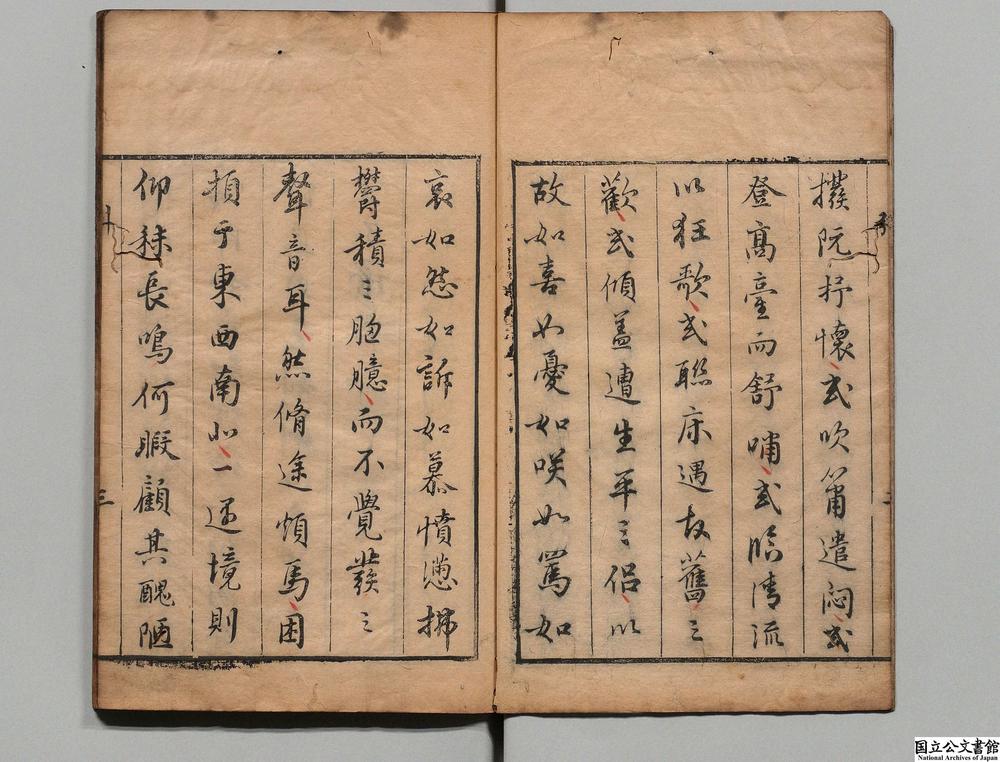 撥阮抒懷、或吹簫遣悶、或
登高臺而舒嘯、或臨清流
以狂歌、或聯床遇故舊、之
歡、或傾蓋遭生平之侶、以
故如喜如憂如咲如罵如
哀如怨如訴如慕憤懣拂
鬱積之胸臆、而不覺發之
聲音耳、然脩途煩馬、困
頓于東西南北、一境則
仰秣長鳴何暇顧其醜陋
三
国立公文書館
National Archives of Japan